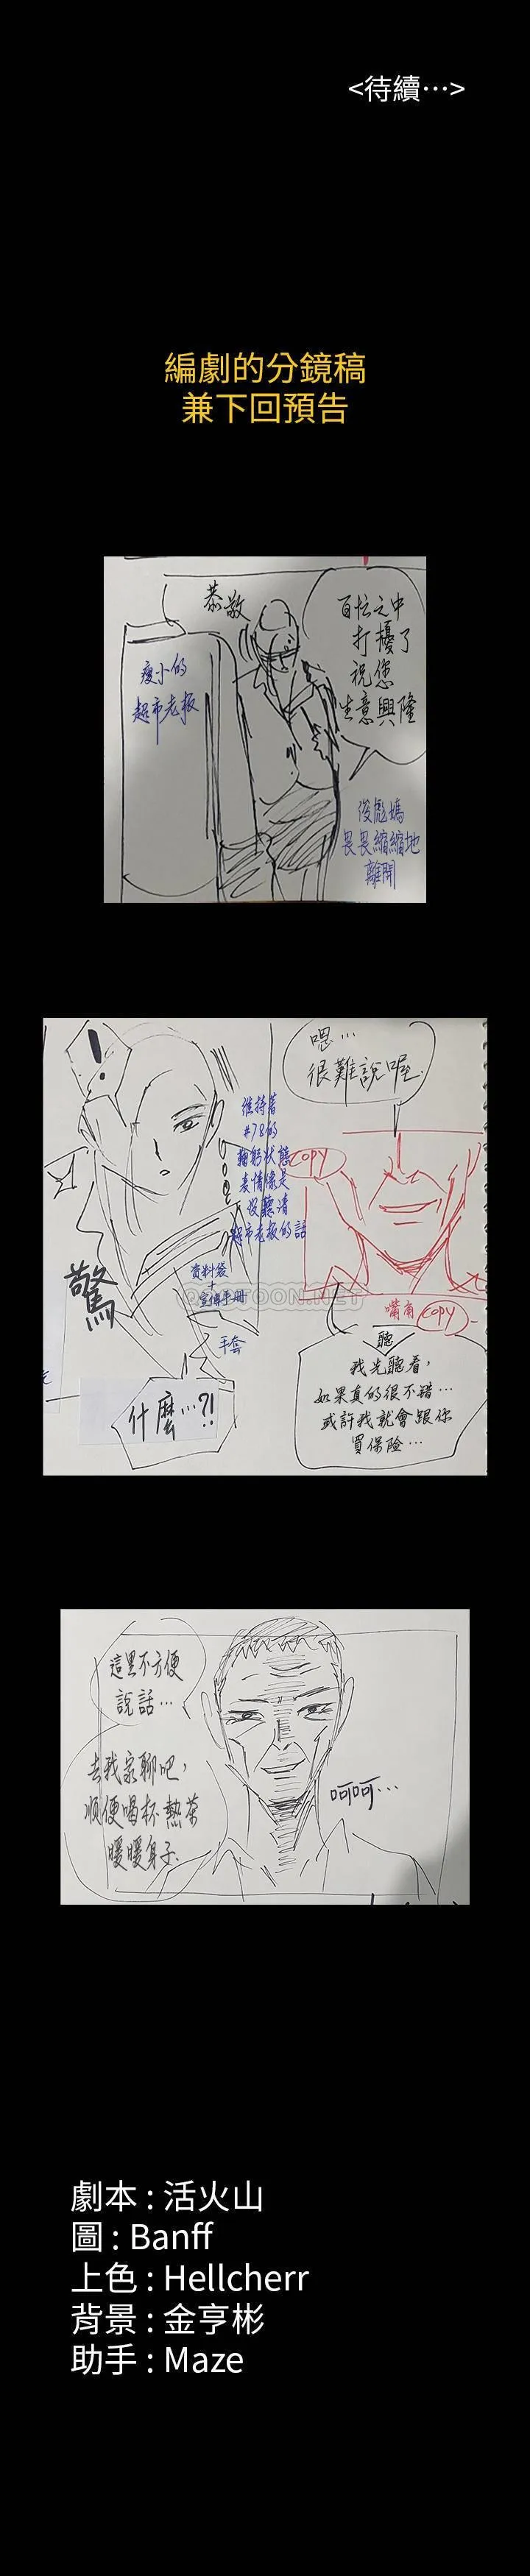 <待續…>
編劇的分鏡稿
兼下回預告
恭敬
百忙之中
打擾了
祝您
生意興隆
瘦小的
超市老板
俊彪媽
畏畏縮縮地
離開
嗯…
很難說喔.
!
維持著
#78的
鞠躬狀態
表情像是
沒聽清
超市老板的話
COPY
資料袋
+
宣傳手冊
手套
驚
什麼…?!
嘴角 COPY
聽
我先聽看,
如果真的很不錯…
或許我就會跟你
買保險…
TOON.NET
這里不方便
說話…
去我家聊吧,
順便喝杯熱茶
暖暖身子.
呵呵…
劇本 : 活火山
圖 : Banff
上色 : Hellcherr
背景 : 金亨彬
助手 : Maze